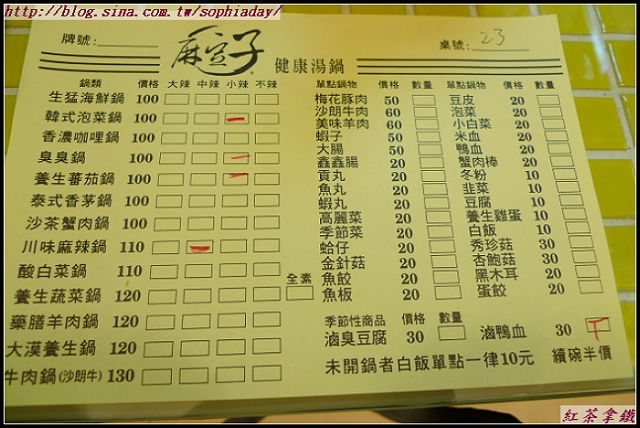 http://blog.sina.com.tw/sophiaday/
牌號:
麻豆子 健康湯鍋
桌號: 23
鍋類 價格 大辣 中辣 小辣 不辣
生猛海鮮鍋 100
韓式泡菜鍋 100
香濃咖哩鍋 100
臭臭鍋 100
養生蕃茄鍋 100
泰式香茅鍋 100
沙茶蟹肉鍋 100
川味麻辣鍋 110
酸白菜鍋 110
全素
養生蔬菜鍋 120
藥膳羊肉鍋 120
大漠養生鍋 120
牛肉鍋(沙朗牛) 130
單點鍋物 價格 數量 單點鍋物 價格 數量
梅花豚肉 50 豆皮 20
沙朗牛肉 60 泡菜 20
美味羊肉 60 小白菜 20
蝦子 50 米血 20
大腸 50 鴨血 20
鑫鑫腸 20 蟹肉棒 20
貢丸 20 冬粉 10
魚丸 20 韭菜 10
蝦丸 20 豆腐 10
高麗菜 20 養生雞蛋 10
季節菜 20 白飯 10
蛤仔 20 秀珍菇 30
金針菇 20 杏鮑菇 30
魚餃 20 黑木耳 20
魚板 20 蛋餃 20
季節性商品 價格 數量
滷臭豆腐 30 滷鴨血 30
未開鍋者白飯單點一律10元 續碗半價
紅茶拿鐵